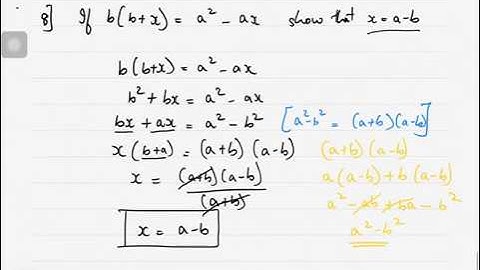 8] If b(b+x) = a² - ax show that x = a-b
b(b+x) = a² - ax
b² + bx = a² - ax
bx + ax = a² - b² [a²-b² = (a+b)(a-b)]
x(b+a) = (a+b)(a-b) (a+b)(a-b)
x = (a+b)(a-b) a(a-b)+b(a-b)
(a+b) a² - ab + ba - b²
x = a-b a² - b²